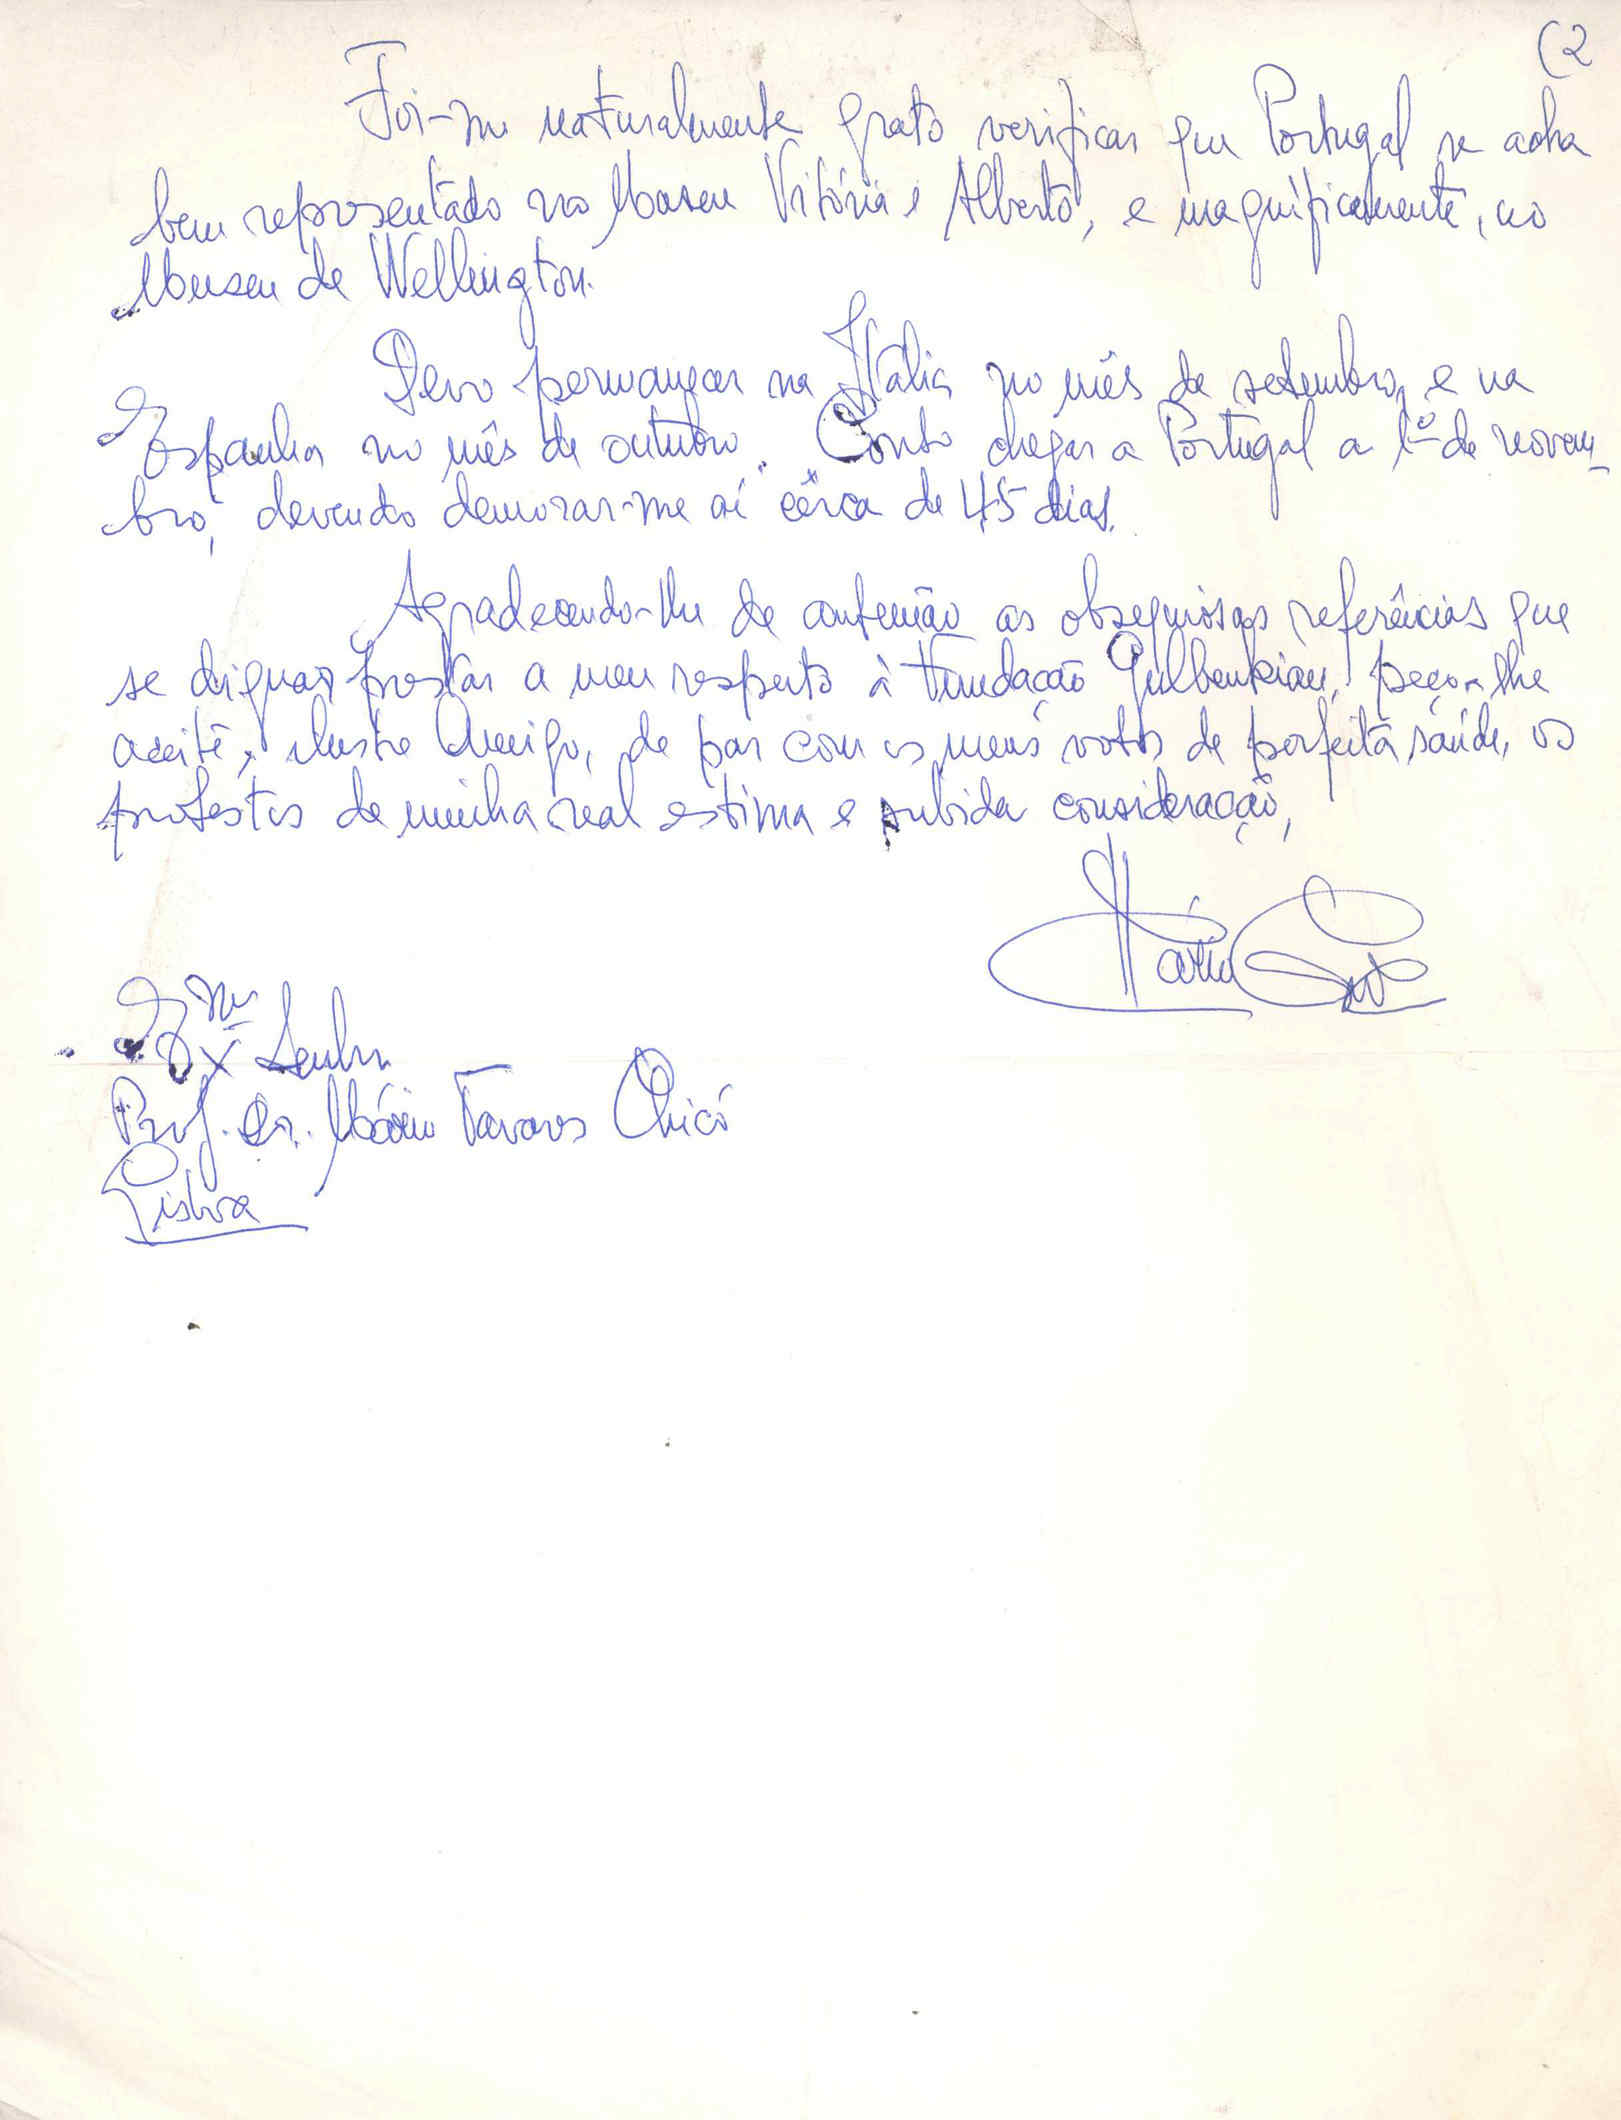 (2
Foi-me naturalmente grato verificar que Portugal se acha
bem representado no Museu Vitória e Alberto, e magnìficamente, no
Museu de Wellington.
Devo permanecer na Itália no mês de setembro, e na
Espanha no mês de outubro. Conto chegar a Portugal a 1º de novem-
bro, devendo demorar-me aí cêrca de 45 dias.
Agradecendo-lhe de antemão as obsequiosas referências que
se dignar prestar a meu respeito à Fundação Gulbenkian, peço-lhe
aceite, ilustre Amigo, de par com os meus votos de perfeita saúde, os
protestos de minha real estima e subida consideração,
Mário
Exmº Senhor
Prof. Dr. Mário Tavares Chicó
Lisboa